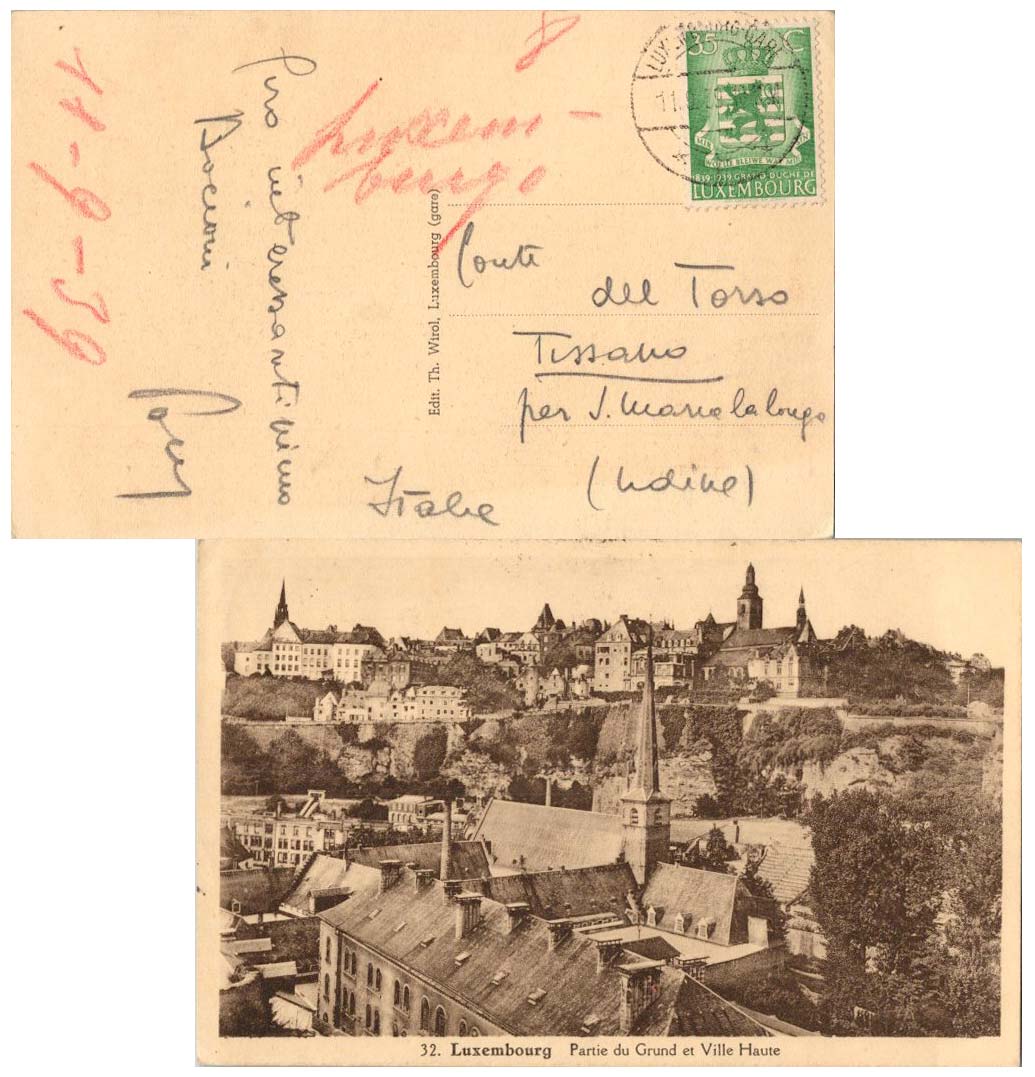 11-9-39
8
Luxem-
burgo
giro interessantissimo
Bocconi
35 C
MIR WOELLE BLEIWE WAT MIR SIN
1839-1939 GRAND-DUCHÉ DE
LUXEMBOURG
LUXEMBOURG GARE
Edit. Th. Wirol, Luxembourg (gare)
Conte
del Torso
Tissano
per S. Maria la longa
(Udine)
Italie
32. Luxembourg Partie du Grund et Ville Haute